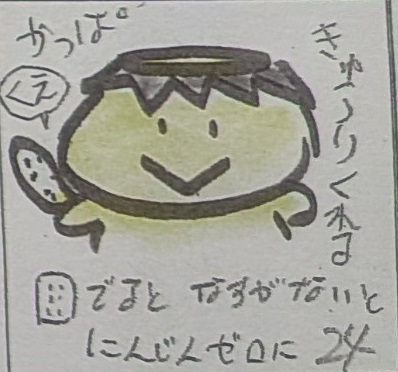 かっぱ
くえ
きゅうりくれる
でると なすがないと
にんじんゼロに 24